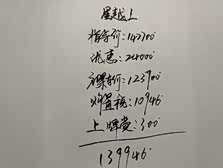 星越L
指导价:147700
优惠:24000
裸车价:123700
购置税:10946
上牌费:300
139946